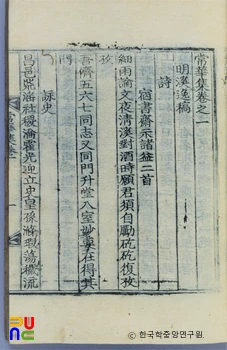 常華集卷之一
明溪逸稿
詩
宿書齋示諸益二首
細雨論文夜淸溪對酒時顧君須自勵矻矻復孜
孜
吾儕五六七同志又同門升堂入室妙學在得其
門
詠史
昌邑荒淫社稷淪霍光迎立史皇孫
流
한국학중앙연구원